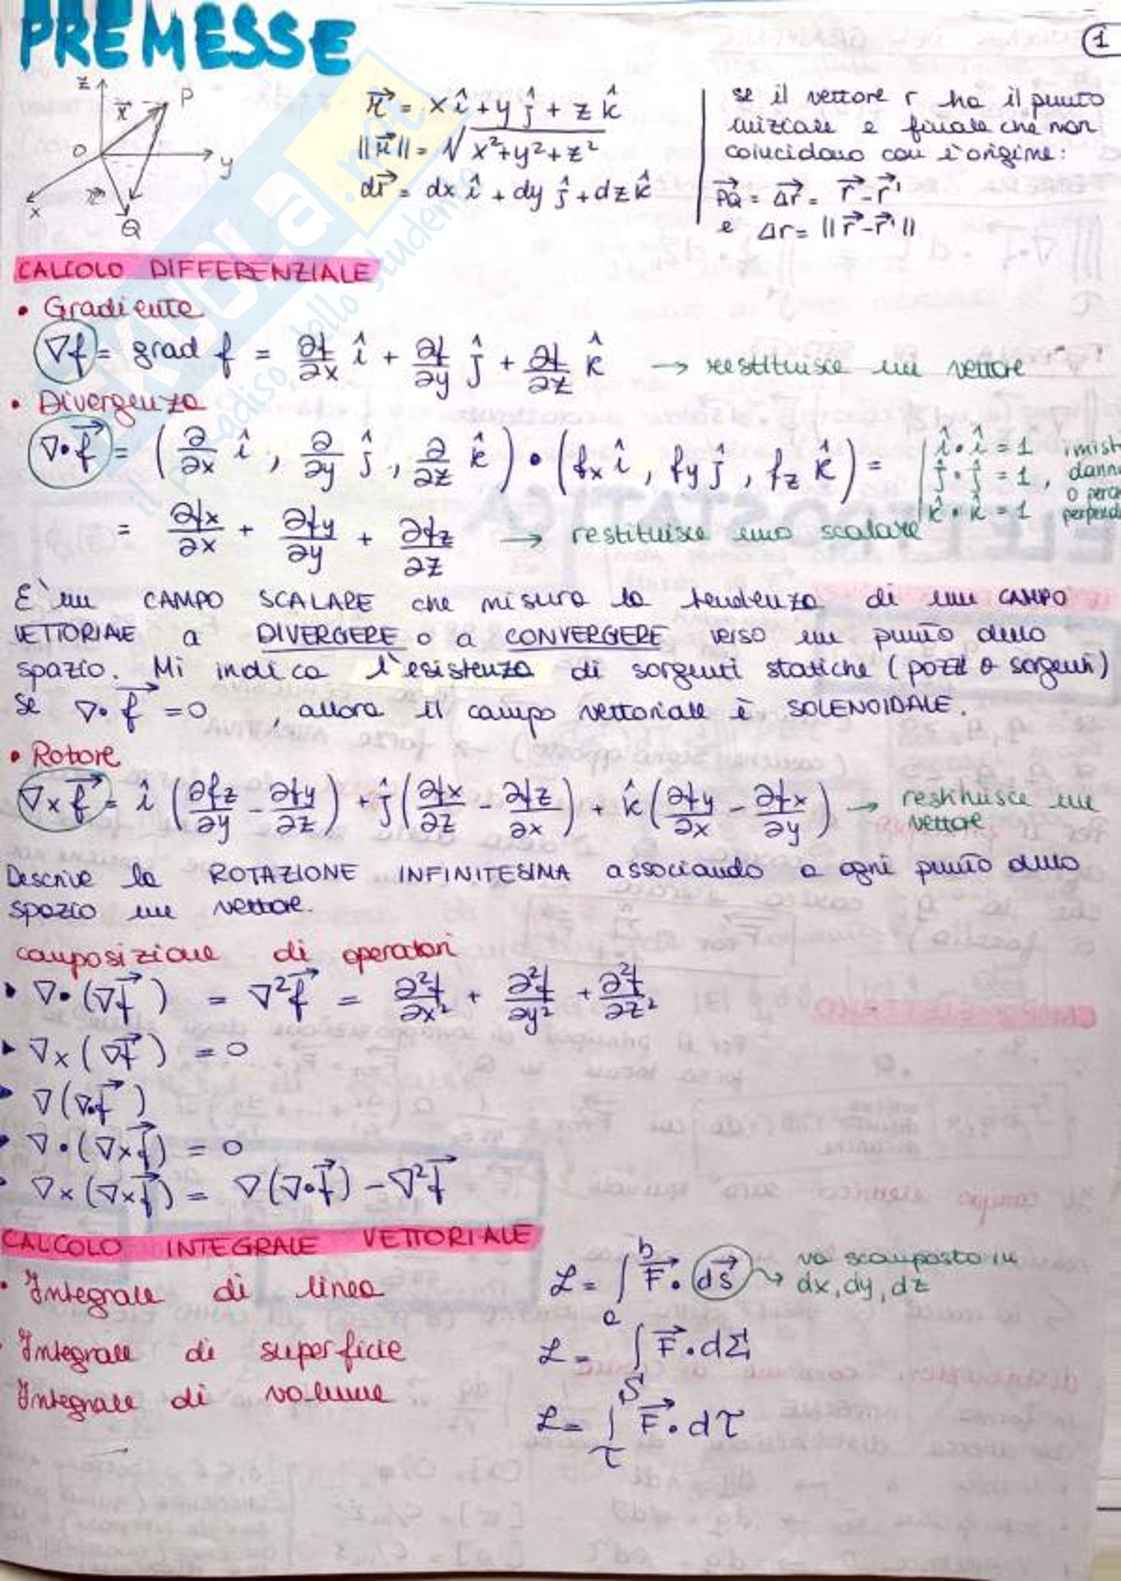 PREMESSE
1
z
P
r⃗
O
y
x
Q
r⃗ = x î + y ĵ + z k̂
||r⃗|| = √x²+y²+z²
dr⃗ = dx î + dy ĵ + dz k̂
se il vettore r ha il punto
iniziale e finale che non
coincidano con l'origine:
PQ⃗ = Δr⃗ = r⃗ - r⃗'
e Δr = ||r⃗ - r⃗'||
CALCOLO DIFFERENZIALE
• Gradiente
∇f = grad f = ∂f/∂x î + ∂f/∂y ĵ + ∂f/∂z k̂ → restituisce un vettore
• Divergenza
∇•f⃗ = (∂/∂x î , ∂/∂y ĵ , ∂/∂z k̂) • (fx î , fy ĵ , fz k̂) =
î•î = 1
ĵ•ĵ = 1 ,
k̂•k̂ = 1
i mist
danno
o perch
perpend
= ∂fx/∂x + ∂fy/∂y + ∂fz/∂z → restituisce uno scalare
E' un CAMPO SCALARE che misura la tendenza di un CAMPO
VETTORIALE a DIVERGERE o a CONVERGERE verso un punto dello
spazio. Mi indica l'esistenza di sorgenti statiche (pozzi o sorgenti)
Se ∇•f⃗ = 0 , allora il campo vettoriale è SOLENOIDALE.
• Rotore
∇×f⃗ = î (∂fz/∂y - ∂fy/∂z) + ĵ (∂fx/∂z - ∂fz/∂x) + k̂ (∂fy/∂x - ∂fx/∂y) → restituisce un
vettore
Descrive la ROTAZIONE INFINITESIMA associando a ogni punto dello
spazio un vettore.
composizione di operatori
▸ ∇•(∇f⃗) = ∇²f⃗ = ∂²f/∂x² + ∂²f/∂y² + ∂²f/∂z²
▸ ∇×(∇f⃗) = 0
▸ ∇(∇•f⃗)
▸ ∇•(∇×f⃗) = 0
▸ ∇×(∇×f⃗) = ∇(∇•f⃗) - ∇²f⃗
CALCOLO INTEGRALE VETTORIALE
• Integrale di linea
ℒ = ∫ₐᵇ F⃗ • ds⃗ → va scomposto in
dx, dy, dz
• Integrale di superficie
ℒ = ∫_S F⃗ • dΣ
Integrale di volume
ℒ = ∫_τ F⃗ • dτ